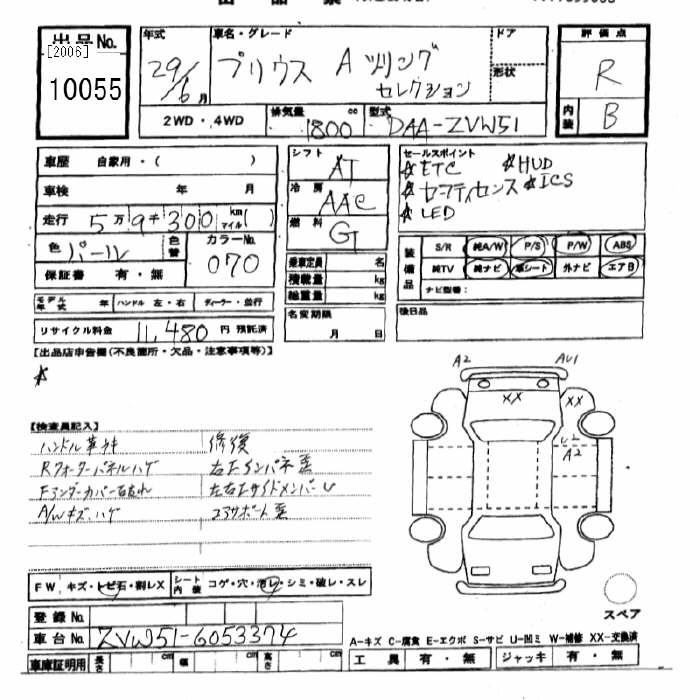 出品No.
[2006]
10055
年式
29/6月
車名・グレード
プリウス A ツーリング
セレクション
ドア
形状
評価点
R
内装 B
2WD・4WD
排気量 1800 cc
型式 DAA-ZVW51
車歴 自家用・( )
車検 年 月
走行 5万9千300km マイル( )
色 パール 色替
カラーNo. 070
保証書 有・無
モデル年式 年 ハンドル 左・右 ディーラー・並行
リサイクル料金 11,480 円 預託済
シフト AT
冷房 AAC
燃料 G
乗車定員 名
積載量 kg
総重量 kg
名変期限 月 日
セールスポイント
☆ETC ☆HUD
☆セーフティセンス ☆ICS
☆LED
装備品
S/R 純A/W P/S P/W ABS
純TV 純ナビ 革シート 外ナビ エアB
ナビ型番:
後日品
【出品店申告欄(不良箇所・欠品・注意事項等)】
☆
【検査員記入】
ハンドル革キキ
Rクォーターパネルハゲ
Fアンダーカバー右切れ
A/Wキズ、ハゲ
修復
右Fインパネ歪
左右FサイドメンバーU
コアサポート歪
A2
AU1
XX
XX
A2
FW キズ・トビ石・割レX
シート内装 コゲ・穴・汚レ・シミ・破レ・スレ
登録No.
車台No. ZVW51-6053374
車庫証明用 長さ cm 幅 cm 高さ cm
スペア
A-キズ C-腐食 E-エクボ S-サビ U-凹ミ W-補修 XX-交換済
工具 有・無 ジャッキ 有・無